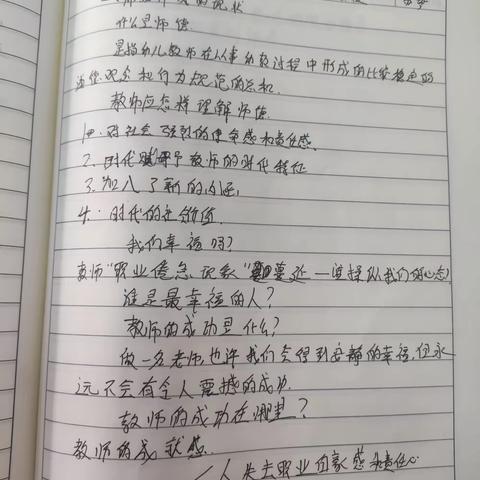 什么是师德
是指幼儿教师在从事幼教过程中形成的比较稳定的
道德观念和行为规范的总和.
教师应怎样理解师德.
1. 对社会强烈的使命感和责任感.
2. 时代赋予教师的时代特征
3. 加入了新的内涵;
4. 时代的主价值.
我们幸福吗?
教师"职业倦怠现象"蔓延—谁操纵我们的心态?
谁是最幸福的人?
教师的成功是什么?
做一名老师,也许我们会得到安静的幸福,但永
远不会有令人震撼的成功.
教师的成功在哪里?
教师的成就感.
人失去职业自豪感和责任心